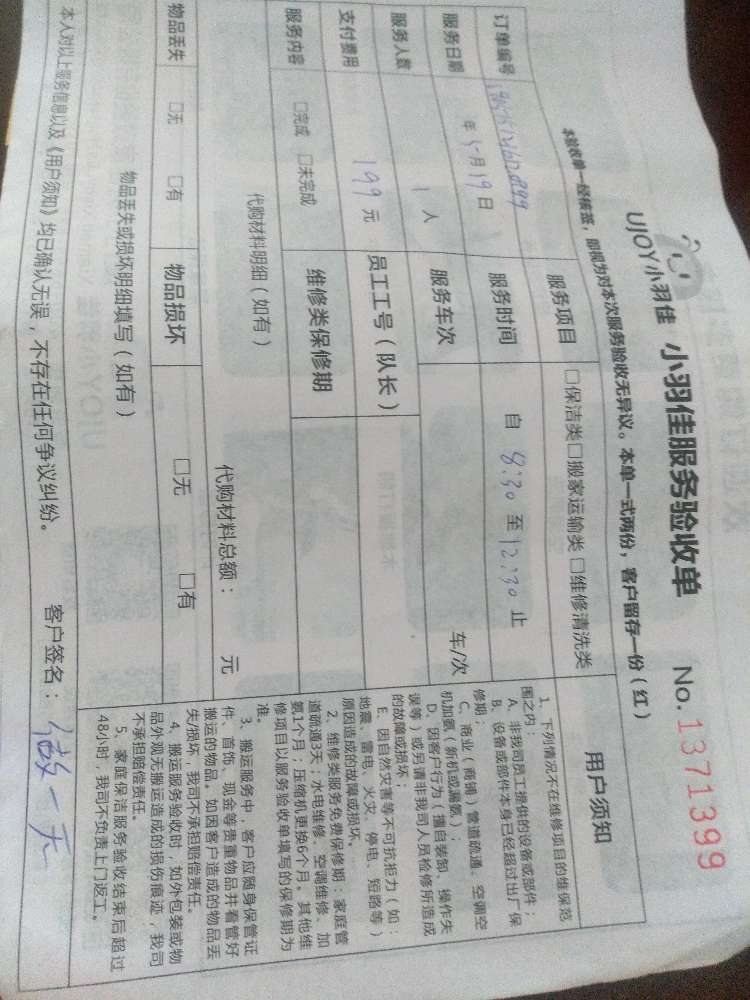 UJOY小羽佳 小羽佳服务验收单 No. 1371399
本验收单一经核签，即视为对本次服务验收无异议。本单一式两份，客户留存一份（红）
订单编号 服务项目 □保洁类□搬家运输类 □维修清洗类
服务日期 年 5月 19日 服务时间 自 8:30 至 12:30 止
服务人数 1 人 服务车次 车/次
支付费用 199 元 员工工号（队长）
服务内容 □完成 □未完成 维修类保修期
代购材料明细（如有） 代购材料总额： 元
物品丢失 □无 □有 物品损坏 □无 □有
物品丢失或损坏明细填写（如有）
用户须知
1、下列情况不在维修项目的维保范
围之内：
A、非我司员工提供的设备或部件；
B、设备或部件本身已经超过出厂保
修期；
C、商业（商铺）管道疏通、空调空
机加氨（新机或漏氨）；
D、因客户行为（擅自装卸、操作失
误等）或另请非我司人员检修所造成
的故障或损坏；
E、因自然灾害等不可抗拒力（如：
地震、雷电、火灾、停电、短路等）
原因造成的故障或损坏。
2、维修类服务免费保修期：家庭管
道疏通3天；水电维修、空调维修、加
氨1个月；压缩机更换6个月。其他维
修项目以服务验收单填写的保修期为
准。
3、搬运服务中，客户应随身保管证
件、首饰、现金等贵重物品并看管好
搬运的物品。如因客户造成的物品丢
失/损坏，我司不承担赔偿责任。
4、搬运服务验收时，如外包装或物
品外观无搬运造成的损伤痕迹，我司
不承担赔偿责任。
5、家庭保洁服务验收结束后超过
48小时，我司不负责上门返工。
本人对以上服务信息以及《用户须知》均已确认无误，不存在任何争议纠纷。 客户签名：做一天